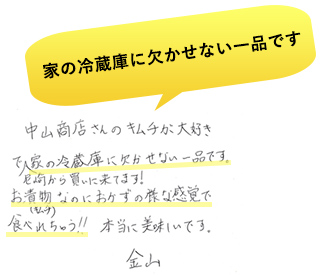 家の冷蔵庫に欠かせない一品です
中山商店さんのキムチが大好き
で、家の冷蔵庫に欠かせない一品です。
尼崎から買いに来てます!
お漬物なのにおかずの様な感覚で
(キムチ)
食べれちゃう!! 本当に美味しいです。
金山